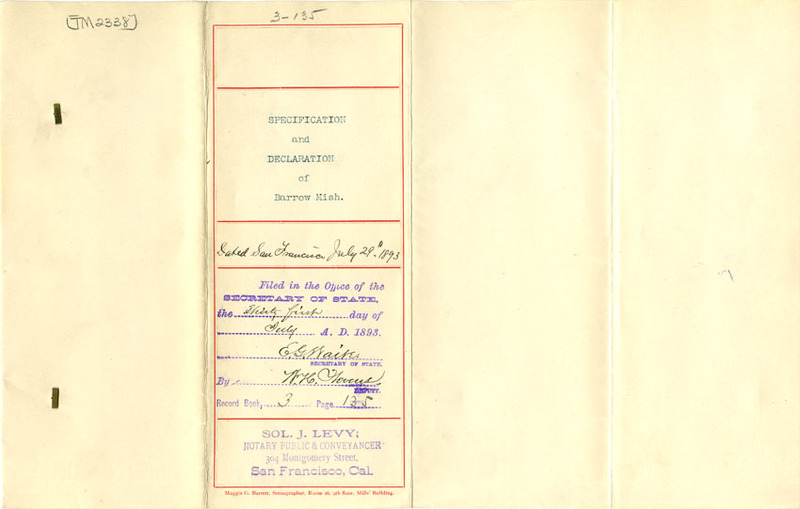 TM2338
3-135
SPECIFICATION
and
DECLARATION
of
Barrow Mish.
Dated San Francisco July 29" 1893
Filed in the Office of the
SECRETARY OF STATE,
the Thirty first day of
July A. D. 1893.
E. G. Waite
SECRETARY OF STATE.
By W. H.
DEPUTY.
Record Book, 3 Page 135
SOL. J. LEVY;
NOTARY PUBLIC & CONVEYANCER
304 Montgomery Street,
San Francisco, Cal.
Maggie G. Barrett, Stenographer, Room 26, 9th floor, Mills' Building.